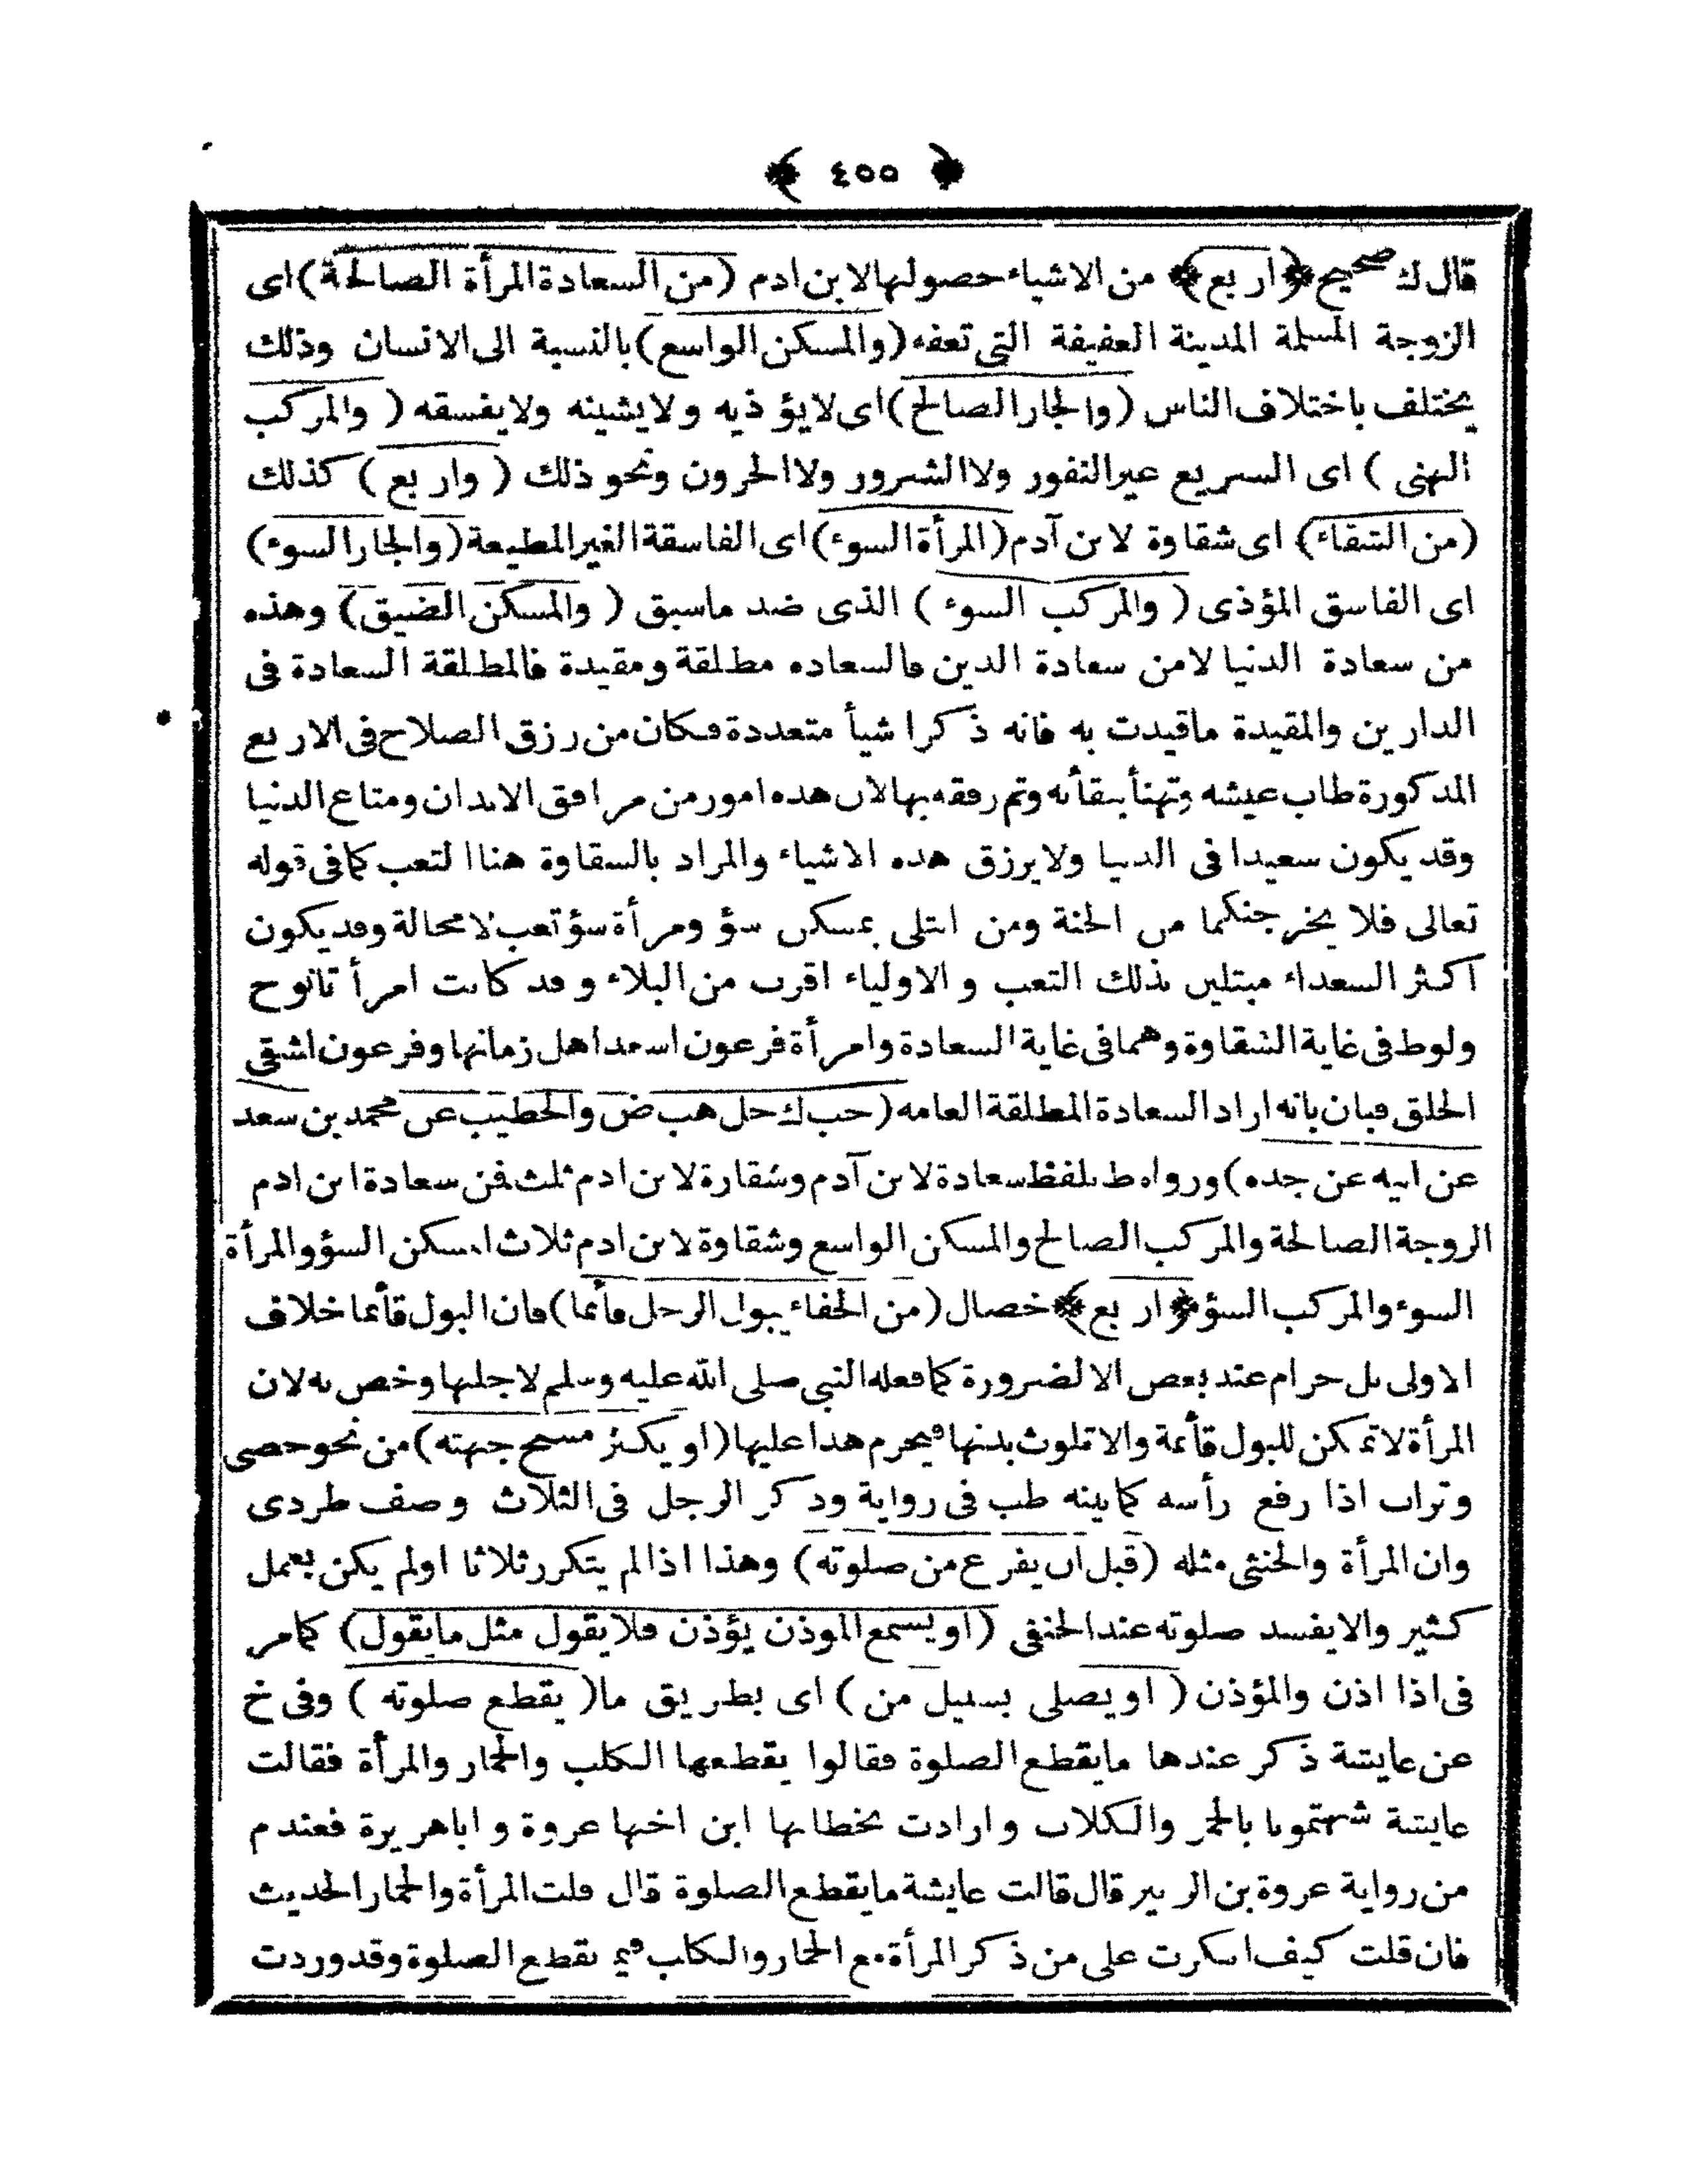 ﴿ ٤٥٥ ﴾
قال ك صحيح ﴿اربع﴾ من الاشياء حصولها لابن ادم (من السعادة المرأة الصالحة) اى
الزوجة المسلمة المدينة العفيفة التى تعفه (والمسكن الواسع) بالنسبة الى الانسان وذلك
يختلف باختلاف الناس (والجار الصالح) اى لا يؤذيه ولا يشينه ولا يفسقه (والمركب
الهنى) اى السريع غير النفور ولا الشرور ولا الحرون ونحو ذلك (واربع) كذلك
(من الشقاء) اى شقاوة لابن آدم (المرأة السوء) اى الفاسقة الغير المطيعة (والجار السوء)
اى الفاسق المؤذى (والمركب السوء) الذى ضد ماسبق (والمسكن الضيق) وهذه
من سعادة الدنيا لا من سعادة الدين فالسعاده مطلقة ومقيدة فالمطلقة السعادة فى
الدارين والمقيدة ماقيدت به فانه ذكر اشيأ متعددة فكان من رزق الصلاح فى الاربع
المذكورة طاب عيشه وتهنأ ببقأئه وتم رفقه بها لان هذه امور من مرافق الابدان ومتاع الدنيا
وقد يكون سعيدا فى الدنيا ولا يرزق هذه الاشياء والمراد بالشقاوة هنا التعب كما فى قوله
تعالى فلا يخرجنكما من الجنة ومن ابتلى بمسكن سؤ ومرأة سؤ تعب لا محالة وقد يكون
اكثر السعداء مبتلين بذلك التعب و الاولياء اقرب من البلاء و قد كانت امرأتا نوح
ولوط فى غاية الشقاوة وهما فى غاية السعادة وامرأة فرعون اسعد اهل زمانها وفرعون اشقى
الخلق فبان بانه اراد السعادة المطلقة العامه (حب ك حل هب ض والخطيب عن محمد بن سعد
عن ابيه عن جده) ورواه ط بلفظ سعادة لابن آدم وشقارة لابن ادم ثلث فمن سعادة ابن ادم
الزوجة الصالحة والمركب الصالح والمسكن الواسع وشقاوة لابن ادم ثلاث المسكن السؤ والمرأة
السوء والمركب السؤ ﴿اربع﴾ خصال (من الجفاء يبول الرجل قأئما) فان البول قأئما خلاف
الاولى بل حرام عند بعض الا لضرورة كما فعله النبى صلى الله عليه وسلم لاجلها وخص به لان
المرأة لا تمكن للبول قأئمة والا تملوث بدنها فيحرم هذا عليها (او يكثر مسح جبهته) من نحو حصى
وتراب اذا رفع رأسه كما بينه طب فى رواية وذكر الرجل فى الثلاث وصف طردى
وان المرأة والخنثى مثله (قبل ان يفرغ من صلوته) وهذا اذا لم يتكرر ثلاثا اولم يكن بعمل
كثير والا يفسد صلوته عند الحنفى (او يسمع الموذن يؤذن فلا يقول مثل ما يقول) كما مر
فى اذا اذن والمؤذن (او يصلى بسبيل من) اى بطريق ما (يقطع صلوته) وفى خ
عن عايشة ذكر عندها ما يقطع الصلوة فقالوا يقطعها الكلب والحمار والمرأة فقالت
عايشة شبهتمونا بالحمر والكلاب وارادت بخطابها ابن اختها عروة و اباهريرة فعند م
من رواية عروة بن الزبير قال قالت عايشة ما يقطع الصلوة قال قلت المرأة والحمار الحديث
فان قلت كيف انكرت على من ذكر المرأة مع الحمار والكلب فيم يقطع الصلوة وقد وردت